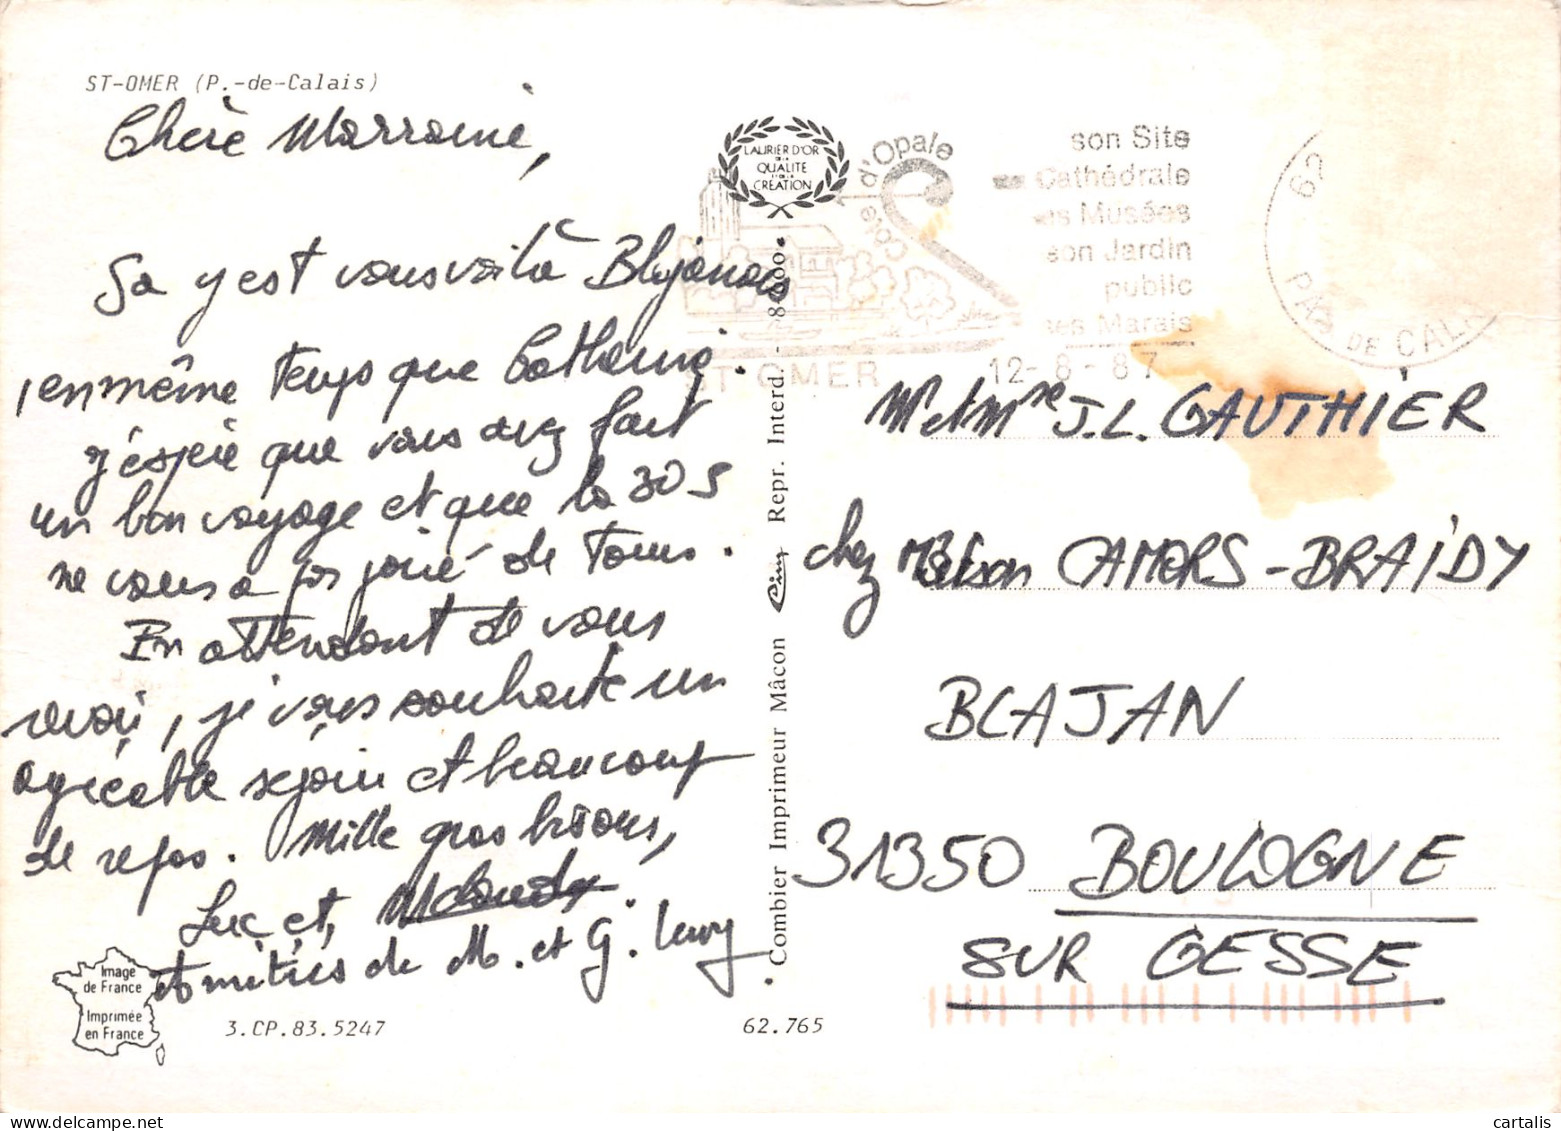 ST-OMER (P.-de-Calais)
Chère Marraine,
Sa y est vous voilà Blajanais
, en même temps que Catherine.
J'espère que vous avez fait
un bon voyage et que la 305
ne vous a pas joué de tours.
En attendant de vous
revoir, je vous souhaite un
agréable séjour et beaucoup
de repos. Mille gros bisous,
Luc et
Amitiés de M. et G.
Image
de France
Imprimée
en France
3.CP.83.5247
62.765
LAURIER D'OR
DE LA
QUALITE
ET DE LA
CRÉATION
Combier Imprimeur Mâcon Cim Repr. Interd. -
Côte d'Opale
ST OMER
son Site
Cathédrale
ses Musées
son Jardin
public
ses Marais
12-8-87
62
PAS DE CALAIS
Mr et Mme J.L. GAUTHIER
chez Maison CAMORS-BRAIDY
BLAJAN
31350 BOULOGNE
SUR GESSE
cartalis